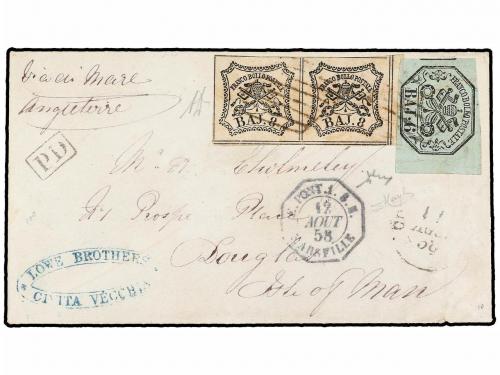 via di Mare
Angleterre
P.D
FRANCO BOLLO POSTALE
BAJ. 8
FRANCO BOLLO POSTALE
BAJ. 8
FRANCO BOLLO POSTALE
BAJ. 6
Cholmeley
Prospe
Douglas
Isle of Man
E. PONT. 1. S. M.
17
AOUT
58
MARSEILLE
LOWE BROTHERS
CIVITA VECCHIA